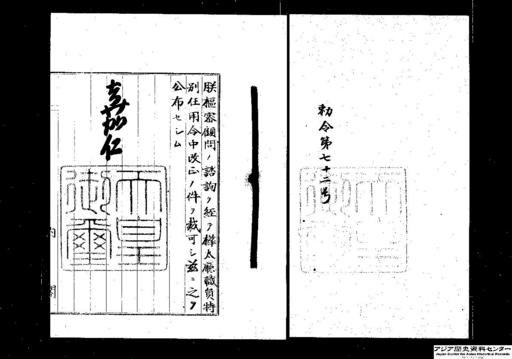 勅令第七十二号
朕枢密顧問ノ諮詢ヲ経テ樺太庁職員特
別任用令中改正ノ件ヲ裁可シ茲ニ之ヲ
公布セシム
嘉仁
天皇
御璽
内閣
アジア歴史資料センター
Japan Center for Asian Historical Records